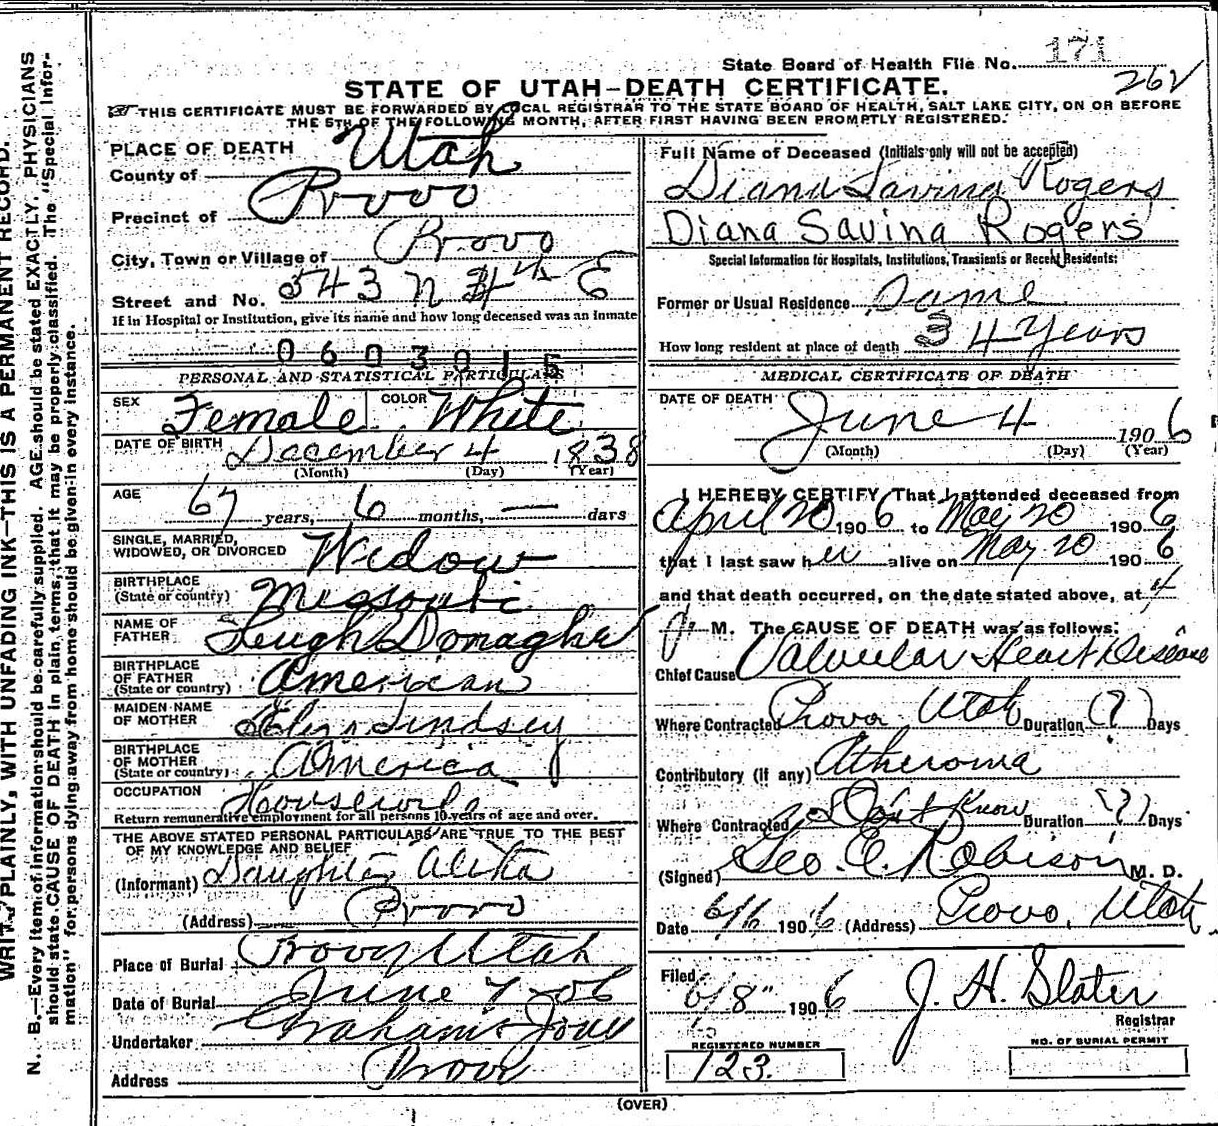 WRITE PLAINLY, WITH UNFADING INK—THIS IS A PERMANENT RECORD.
N. B.—Every item of information should be carefully supplied. AGE should be stated EXACTLY. PHYSICIANS
should state CAUSE OF DEATH in plain terms, that it may be properly classified. The "Special Infor-
mation" for persons dying away from home should be given in every instance.
State Board of Health File No. 171
262
STATE OF UTAH—DEATH CERTIFICATE.
THIS CERTIFICATE MUST BE FORWARDED BY LOCAL REGISTRAR TO THE STATE BOARD OF HEALTH, SALT LAKE CITY, ON OR BEFORE
THE 5TH OF THE FOLLOWING MONTH, AFTER FIRST HAVING BEEN PROMPTLY REGISTERED.
PLACE OF DEATH
County of Utah
Precinct of Provo
City, Town or Village of Provo
Street and No. 543 N 4th E
If in Hospital or Institution, give its name and how long deceased was an inmate
0603015
PERSONAL AND STATISTICAL PARTICULARS
SEX Female COLOR White
DATE OF BIRTH December 4 1838
(Month) (Day) (Year)
AGE 67 years, 6 months, — days
SINGLE, MARRIED,
WIDOWED, OR DIVORCED Widow
BIRTHPLACE
(State or country) Missouri
NAME OF
FATHER Hugh Donaghe
BIRTHPLACE
OF FATHER
(State or country) American
MAIDEN NAME
OF MOTHER Lindsey
BIRTHPLACE
OF MOTHER
(State or country) America
OCCUPATION Housework
Return remunerative employment for all persons 10 years of age and over.
THE ABOVE STATED PERSONAL PARTICULARS ARE TRUE TO THE BEST
OF MY KNOWLEDGE AND BELIEF
(Informant) Daughter
(Address) Provo
Place of Burial Provo Utah
Date of Burial June 7-06
Undertaker Graham & Jones
Address Provo
Full Name of Deceased (Initials only will not be accepted)
Diana Savina Rogers
Diana Savina Rogers
Special Information for Hospitals, Institutions, Transients or Recent Residents:
Former or Usual Residence Same
How long resident at place of death 34 Years
MEDICAL CERTIFICATE OF DEATH
DATE OF DEATH
June 4 1906
(Month) (Day) (Year)
I HEREBY CERTIFY That I attended deceased from
April 20 1906 to May 20 1906
that I last saw her alive on May 20 1906
and that death occurred, on the date stated above, at 4
P M. The CAUSE OF DEATH was as follows:
Chief Cause Valvular Heart Disease
Where Contracted Provo, Utah Duration (?) Days
Contributory (if any) Atheroma
Where Contracted Don't Know Duration (?) Days
(Signed) Geo. E. Robison M. D.
Date 6/6 1906 (Address) Provo, Utah
Filed
6/8" 1906 J. H. Slater
Registrar
REGISTERED NUMBER
123
NO. OF BURIAL PERMIT
(OVER)